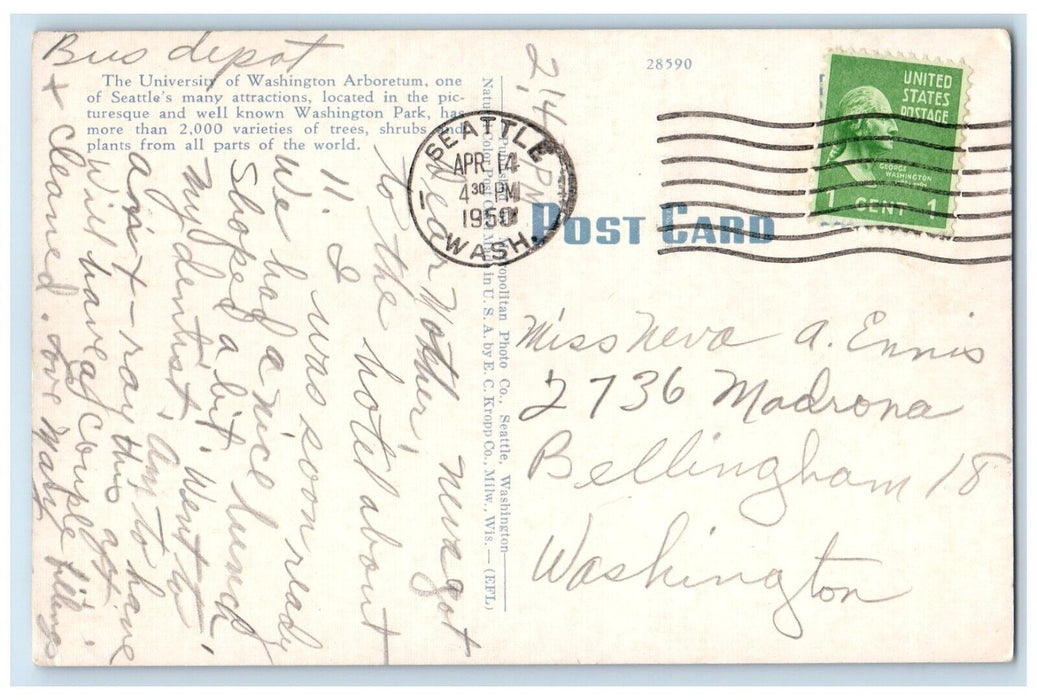 Bus depot
The University of Washington Arboretum, one
of Seattle's many attractions, located in the pic-
turesque and well known Washington Park, has
more than 2,000 varieties of trees, shrubs and
plants from all parts of the world.
28590
POST CARD
UNITED
STATES
POSTAGE
GEORGE
WASHINGTON
1 CENT 1
SEATTLE
APR 14
4 30 PM
1950
WASH.
1
2,14 PM
Dear Mother; Neva got
to the hotel about
11. I was soon ready
We had a nice lunch
Shoped a bit. Went to
My dentist, am to have
an x-ray this aft.
Will have a couple fillings
+ cleaned. Love Mary
Natural Color Post Card Made in U. S. A. by E. C. Kropp Co., Milw., Wis.—(EFL)
opolitan Photo Co., Seattle, Washington
Miss Neva A. Ennis
2736 Madrona
Bellingham 18
Washington